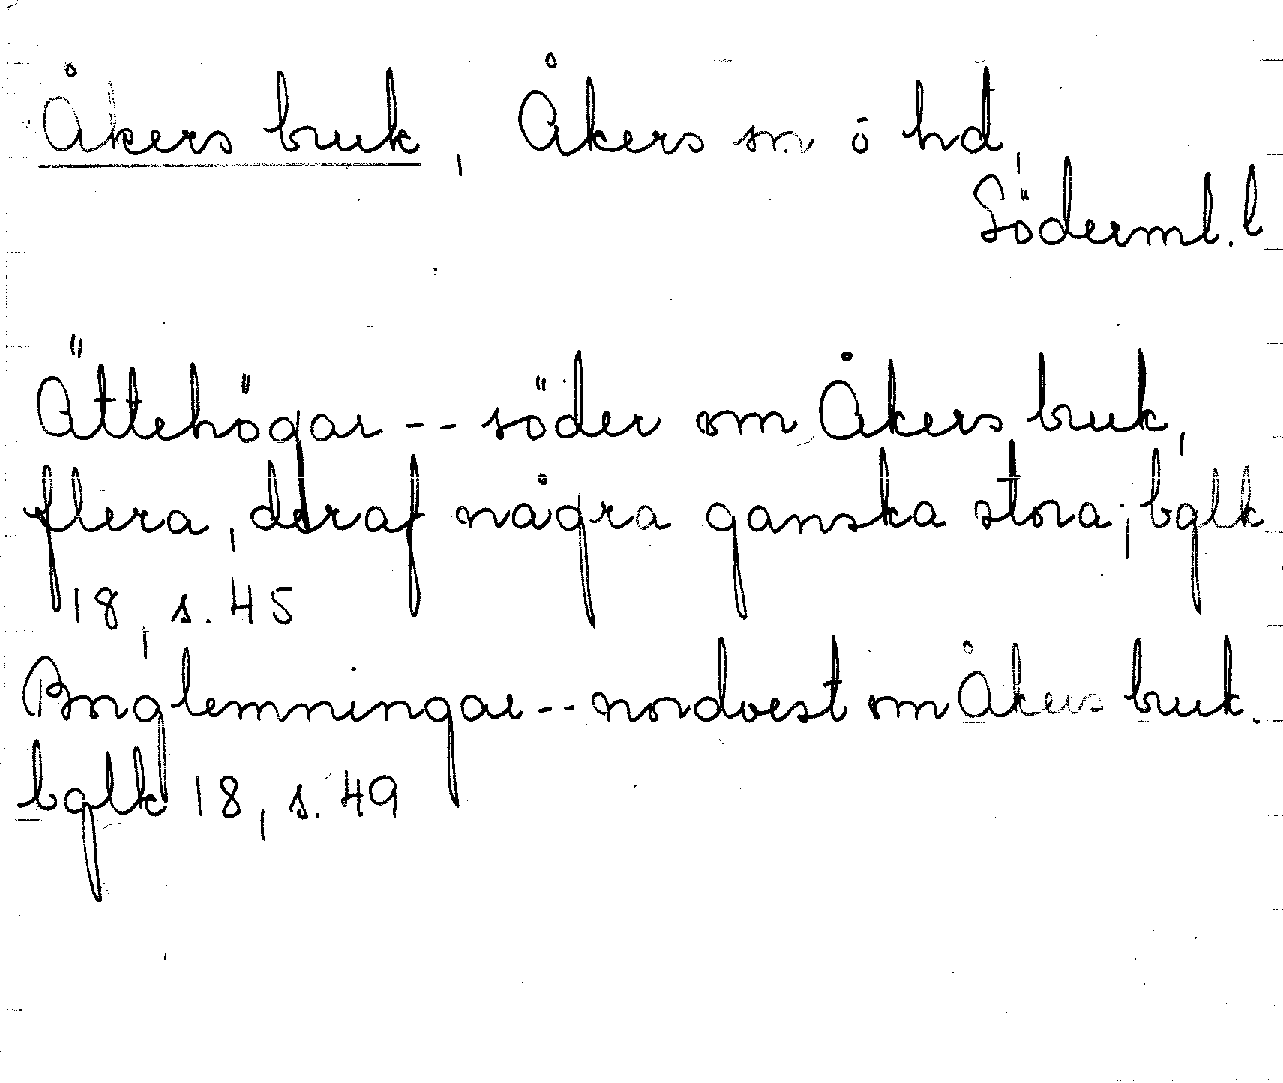 Åkers bruk, Åkers sn o hd,
Söderml. l
Ättehögar -- söder om Åkers bruk,
flera, deraf några ganska stora; bglk
18, s. 45
Borglemningar -- nordvest om Åkers bruk.
bglk 18, s. 49